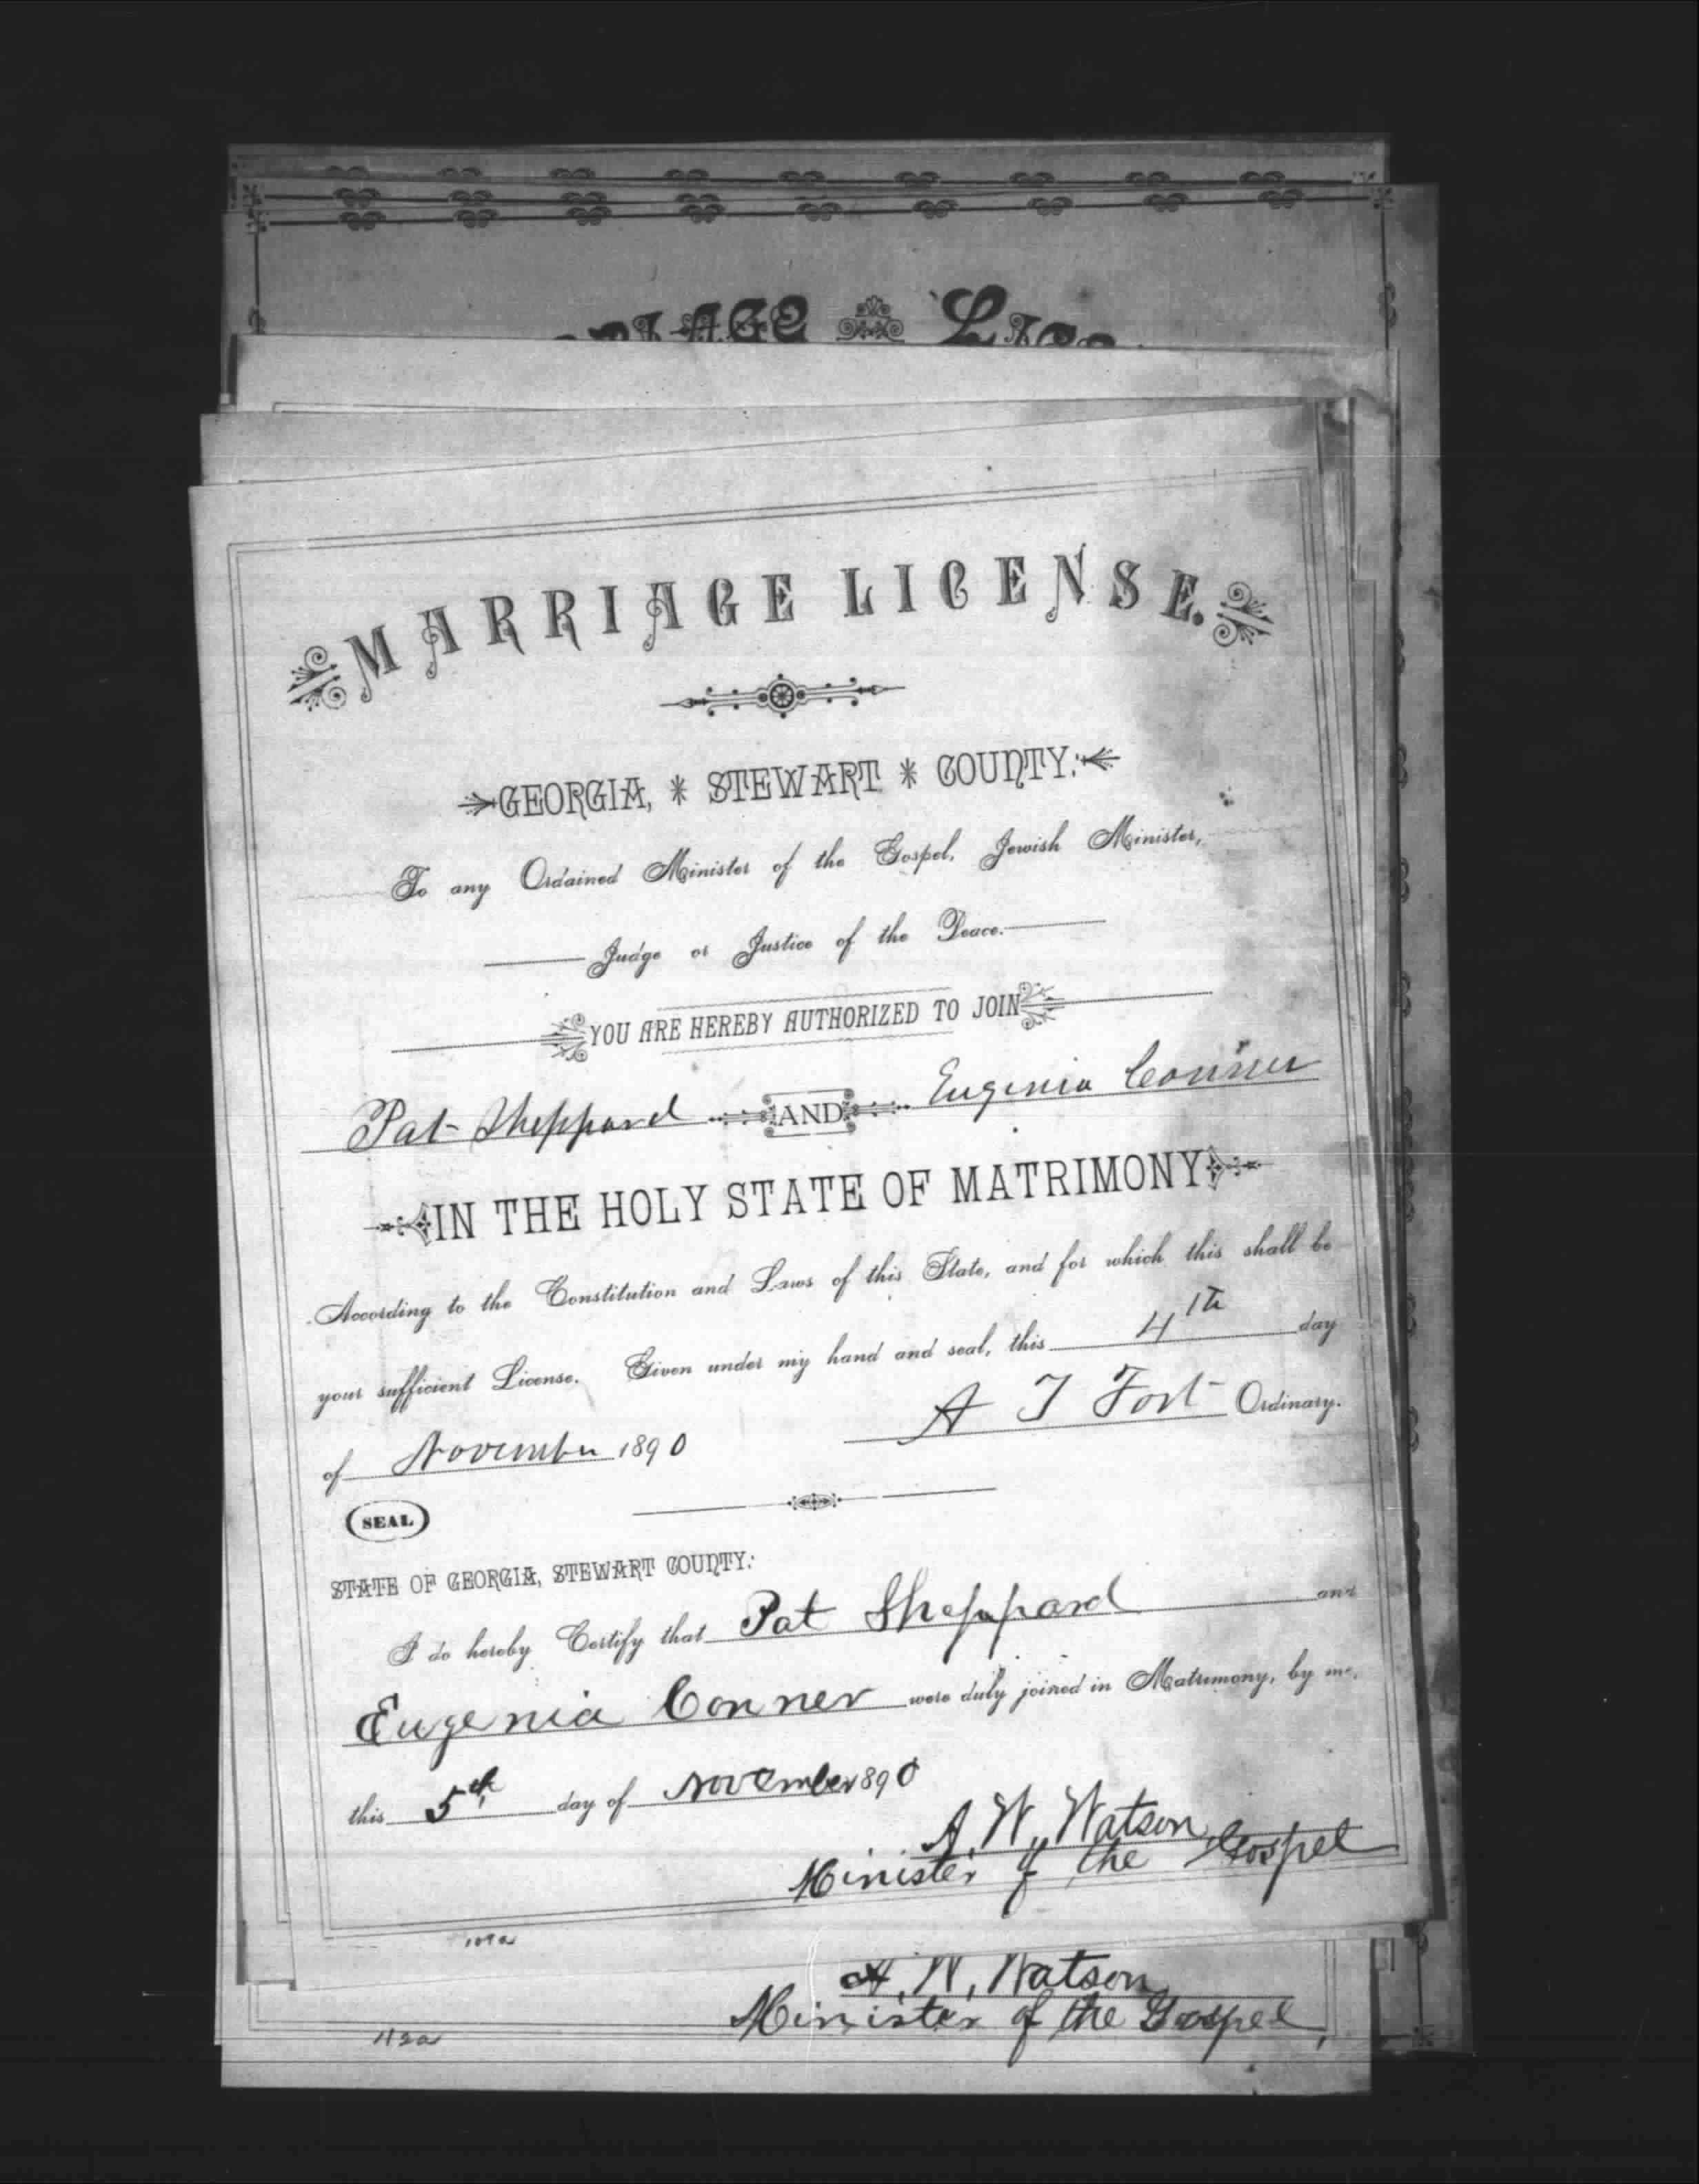 MARRIAGE LICENSE.
GEORGIA, * STEWART * COUNTY:
To any Ordained Minister of the Gospel, Jewish Minister,
Judge or Justice of the Peace.
YOU ARE HEREBY AUTHORIZED TO JOIN
Pat Sheppard AND Eugenia Conner
IN THE HOLY STATE OF MATRIMONY
According to the Constitution and Laws of this State, and for which this shall be
your sufficient License. Given under my hand and seal, this 4th day
of November 1890 A T Fort Ordinary.
SEAL
STATE OF GEORGIA, STEWART COUNTY:
I do hereby Certify that Pat Sheppard and
Eugenia Conner were duly joined in Matrimony, by me,
this 5th day of November 1890
A. W. Watson
Minister of the Gospel
A. W. Watson
Minister of the Gospel,
112a